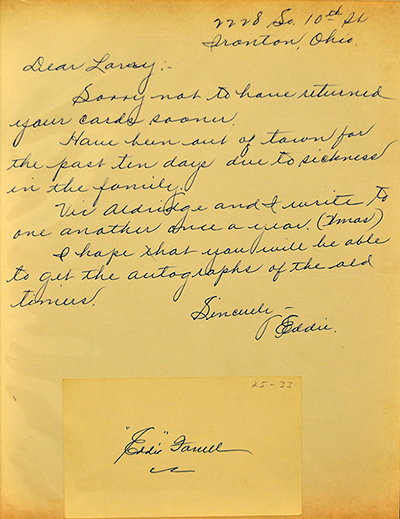 2228 So. 10th St
Ironton, Ohio.
Dear Larry:-
Sorry not to have returned
your cards sooner.
Have been out of town for
the past ten days due to sickness
in the family.
Vic Aldridge and I write to
one another once a year. (Xmas)
I hope that you will be able
to get the autographs of the old
timers.
Sincerely -
Eddie.
25-33
"Eddie" Farrell